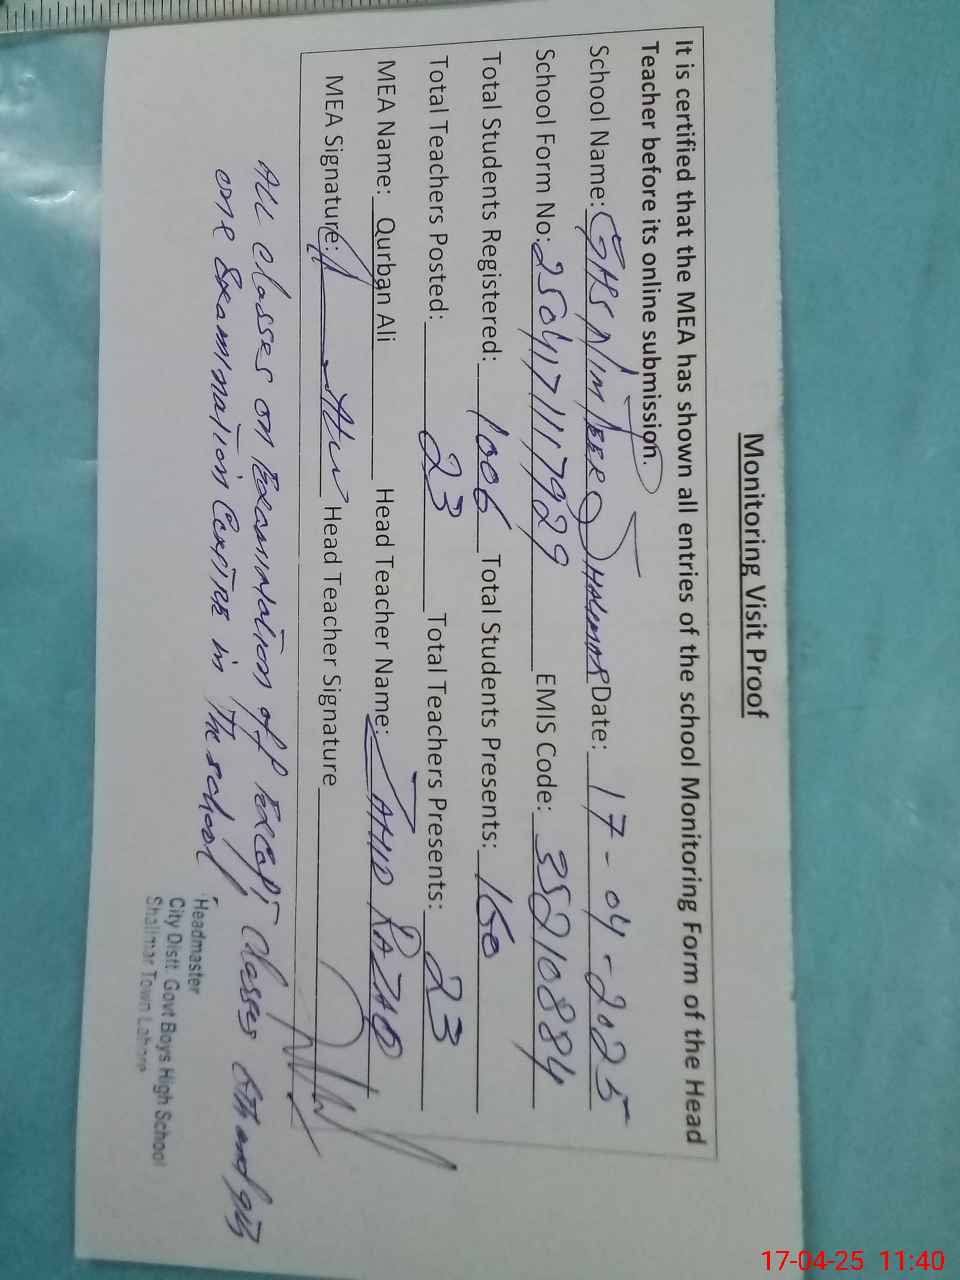 Monitoring Visit Proof
It is certified that the MEA has shown all entries of the school Monitoring Form of the Head
Teacher before its online submission.
School Name: GHS Date: 17-04-2025
School Form No: 2504171117929 EMIS Code: 35210884
Total Students Registered: 1006 Total Students Presents: 150
Total Teachers Posted: 23 Total Teachers Presents: 23
MEA Name: Qurban Ali Head Teacher Name:
MEA Signature: Head Teacher Signature
All classes on Examination off Except classes 6th and 9th
one Examination in The school
Headmaster
City Distt. Govt Boys High School
Shalimar Town Lahore
17-04-25 11:40